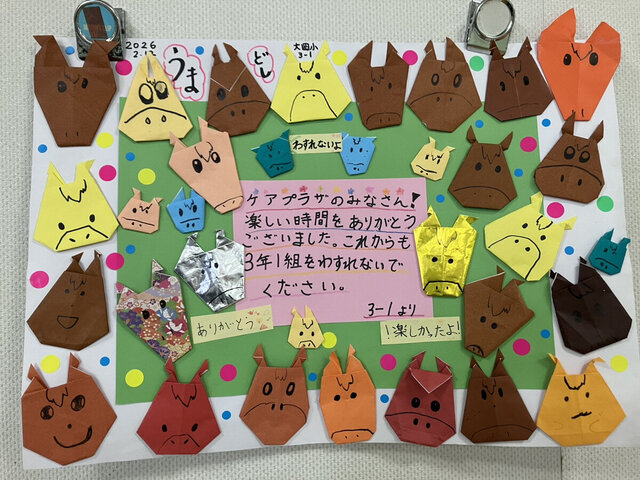 2026
2.13
うま
どし
大岡小
3-1
わすれないよ
ケアプラザのみなさん!
楽しい時間をありがとう
ございました。これからも
3年1組をわすれないで
ください。
3-1より
ありがとう
!楽しかったよ!